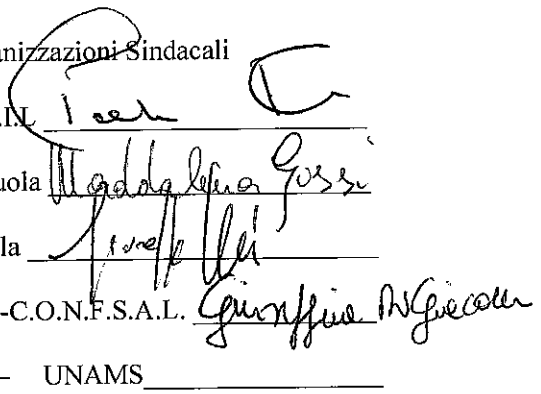 anizzazioni Sindacali
.I.L
uola Maddalena Gissi
la
-C.O.N.F.S.A.L. Giuseppina Di Giacomo
– UNAMS